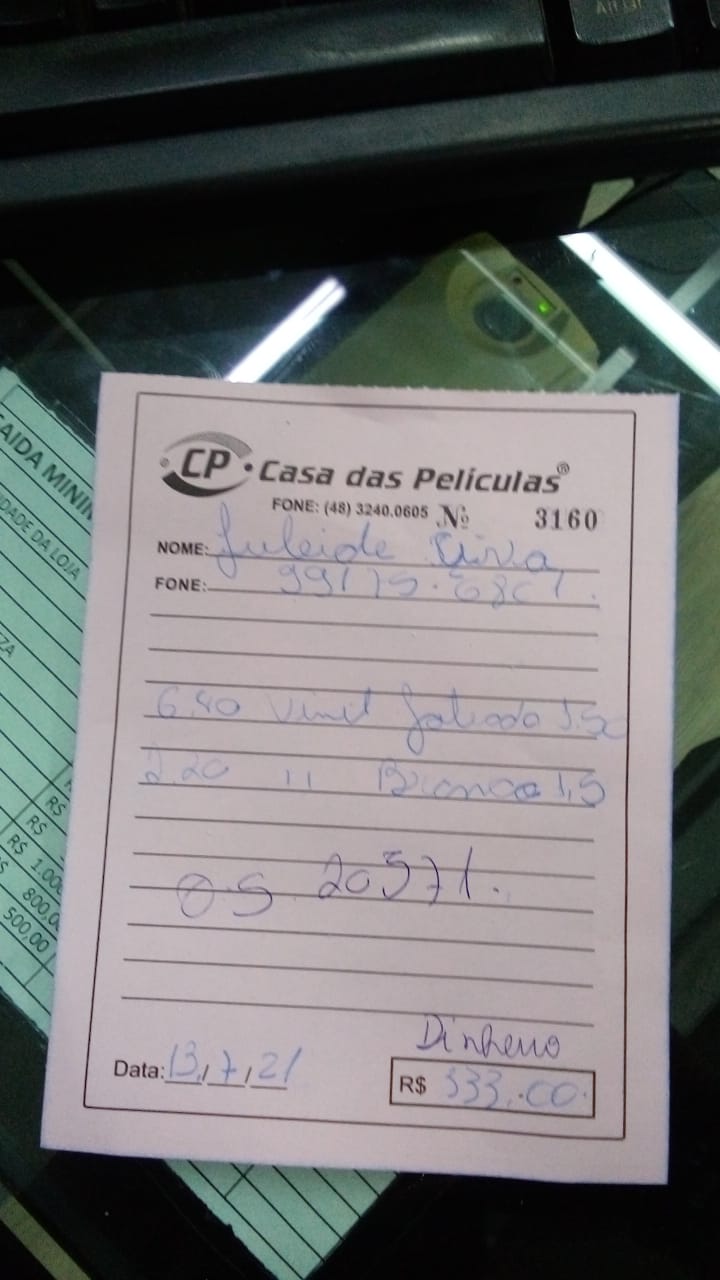 Alt Gr
CP Casa das Películas®
FONE: (48) 3240.0605 Nº 3160
NOME: Juleide
FONE: 99175.
6.40 vinil Jateado 1.50
2.20 11 Branco 1,5
OS 20571.
Dinheiro
Data: 13/7/21
R$ 333,00
AIDA MINI
IDADE DA LOJA
ZA
R$
R$
R$ 1.00
800,0
500,00